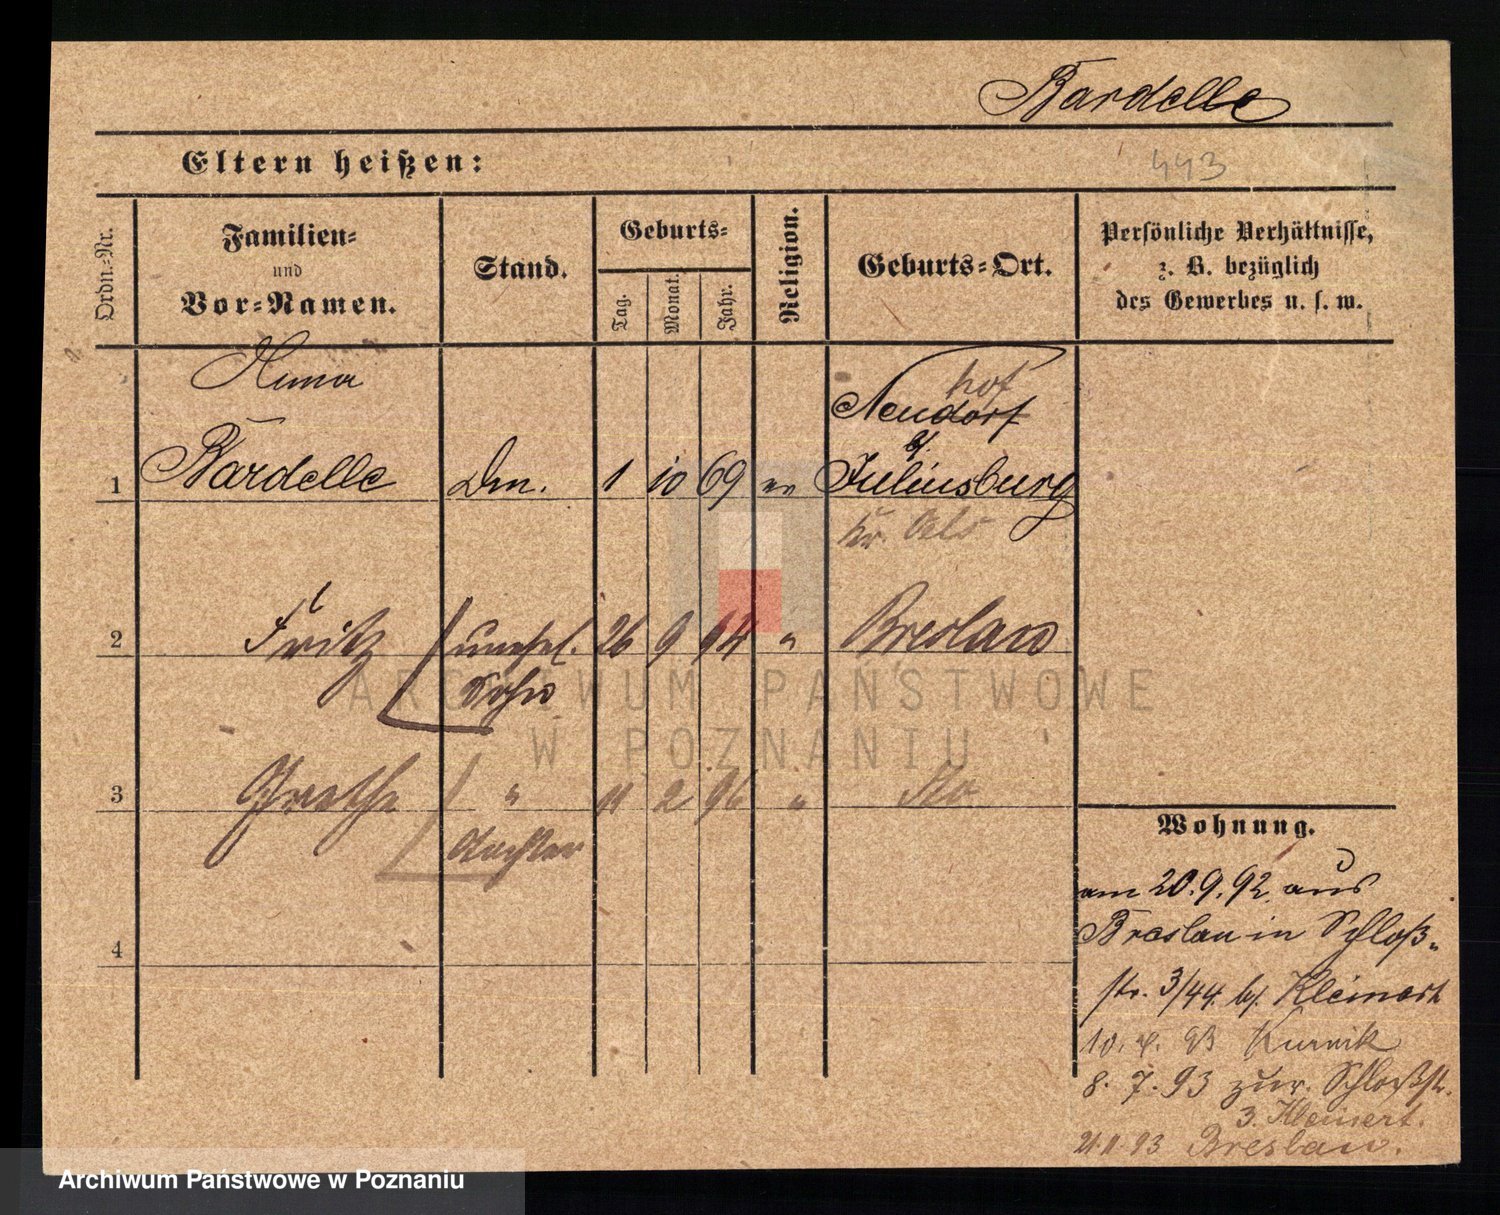 Bardelle
Eltern heißen:
443
Ordn.-Nr.
Familien-
und
Vor-Namen.
Stand.
Geburts-
Tag.
Monat.
Jahr.
Religion.
Geburts-Ort.
Persönliche Verhältnisse,
z. B. bezüglich
des Gewerbes u. s. w.
hof
Neudorf
b/.
1 Bardelle 1 10 69 ev Juliusburg
Kr. Öls
2 Fritz unehel. 26 9 94 " Breslau
Sohn
3 Grethe " 11 2 96 "
Tochter
4
Wohnung.
am 20.9.92 aus
Breslau in Schloß-
str. 3/44. b/. Kleinert
10. 4. 93 Kurnik
8. 7. 93 zur. Schloßstr.
3. Kleinert.
21.11.93 Breslau.
ARCHIWUM PAŃSTWOWE
W POZNANIU
Archiwum Państwowe w Poznaniu